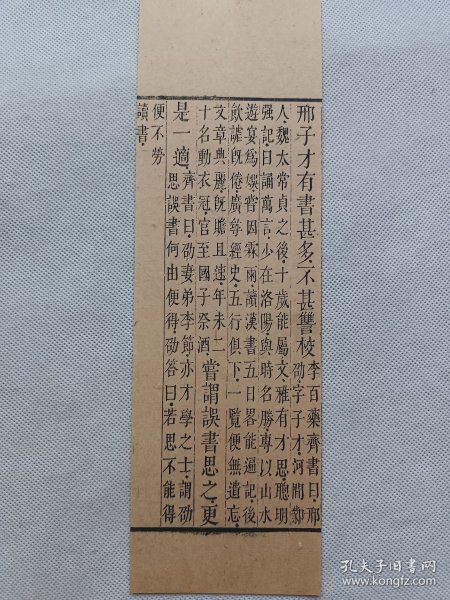 邢子才有書甚多．不甚讐校
李百藥齊書曰．邢
卲字子才．河間鄚
人．魏太常貞之後．十歲能屬文．雅有才思．聰明
强記．日誦萬言．少在洛陽．與時名勝專以山水
遊宴爲娛．嘗因霖雨讀漢書．五日畧能遍記．後
飲謔既倦．廣尋經史．五行俱下．一覽便無遺忘．
文章典麗．既贍且速．年未二
十．名動衣冠．官至國子祭酒．
嘗謂誤書思之．更
是一適．
齊書曰．卲妻弟李節．亦才學之士．謂卲
思誤書何由便得．卲答曰．若思不能得
便不勞
讀書．
孔夫子旧书网
www.kongfz.com